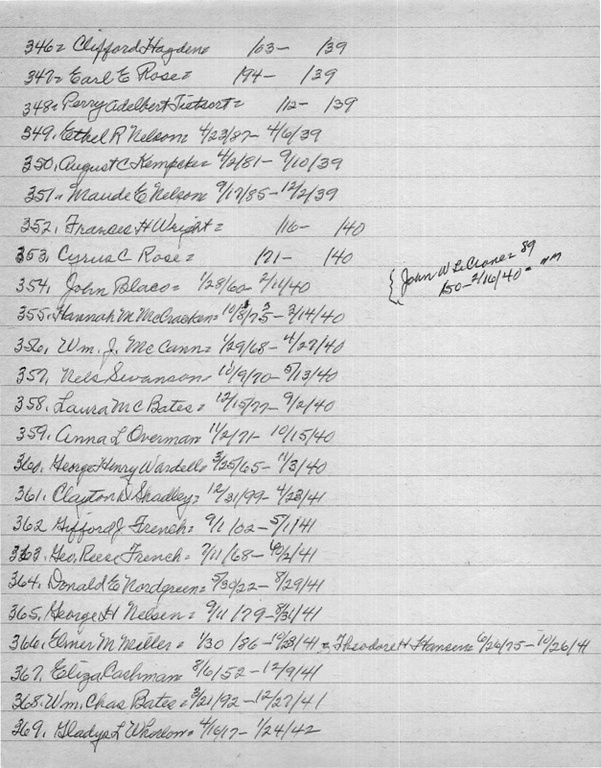 346= Clifford Hagdene /03- /39
347= Earl E Rose= /94- /39
348= Perry Adelbert Tietsort= /12- /39
349. Ethel R Nelson= 4/23/87- 4/6/39
350. August C Kempcke= 4/2/81- 9/10/39
351.= Maude E Nelson 9/17/85-12/2/39
352. Frances H Wright= /16- /40
353. Cyrus C Rose= /71- /40
{ John W LeCrone= 89
354. John Blaco= 1/28/60- 2/11/40
150-2/16/40=
355. Hannah M McCracken= 10/8/75- 2/14/40
356. Wm. J. McCann= 1/29/68- 4/27/40
357. Nels Swanson= 10/9/70- 5/13/40
358. Laura McBates= 12/15/77- 9/2/40
359. Anna L Overman 11/2/71- 10/15/40
360. George Henry Wardell= 3/25/65- 11/3/40
361. Clayton D Shadley= 12/31/99- 4/23/41
362 Gifford J French= 9/1/02-5/1/41
363. Geo. Reese French= 7/11/68- /2/41
364. Donald E Nordgreen= 5/30/22- 8/29/41
365. George H Nelsen= 9/11/79-8/31/41
366. Elmer M Miller= 1/30/86-10/23/41 & Theodore H Hansen= 6/26/75-10/26/41
367. Eliza Cashman 8/6/52-12/9/41
368. Wm. Chas Bates= 3/21/92-12/27/41
369. Gladys L Whorlow= 4/16/17- 1/24/42